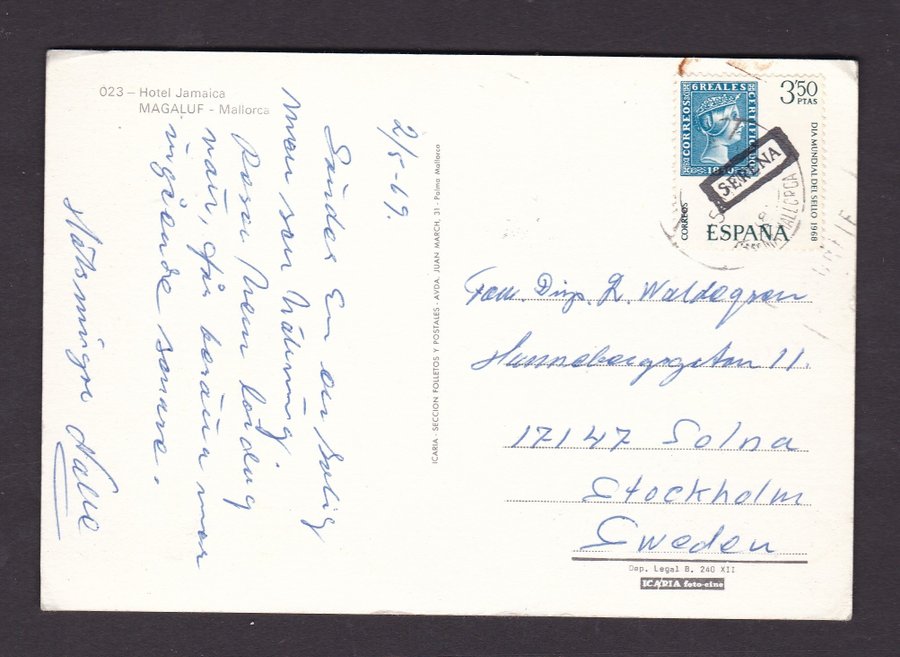 023 – Hotel Jamaica
MAGALUF - Mallorca
2/5-69.
Sänder En solig
men sen
Resan hem lördag
natt, får berätta mer
ingående senare.
Nalle
ICARIA - SECCION FOLLETOS Y POSTALES - AVDA. JUAN MARCH, 31 - Palma Mallorca
6 REALES
CORREOS
CERTIFICADO
1850
3'50
PTAS
DIA MUNDIAL DEL SELLO 1968
CORREOS
ESPAÑA
SERENA
MALLORCA
Fam. Dir. R Waldegren
Hannebergsgatan 11.
17147 Solna
Stockholm
Sweden
Dep. Legal B. 240 XII
ICARIA foto-cine